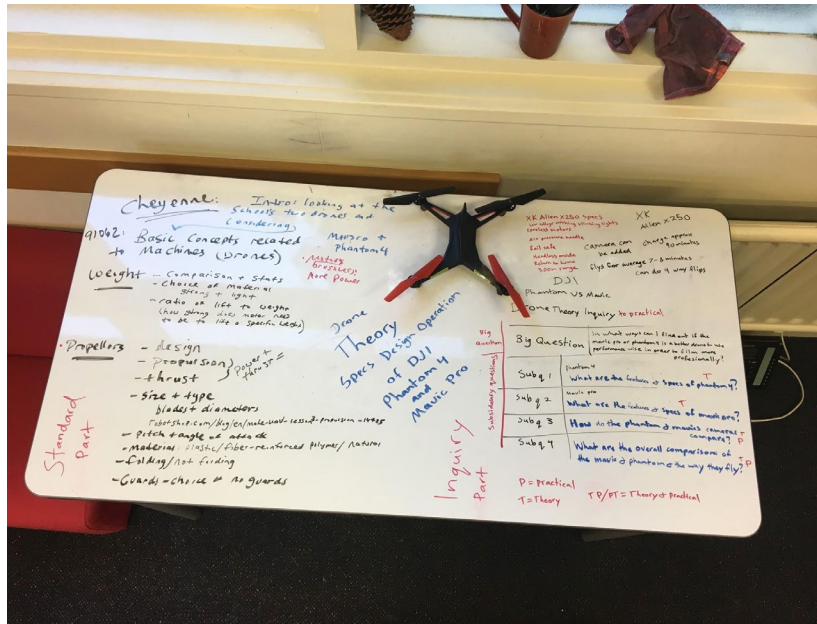 Cheyenne:
Intro: looking at the
School's two drones and
Considering
91062: Basic Concepts related
to Machines (Drones)
Mavpro +
phantom4
• Motors
brushless;
More Power
Weight - Comparison + Stats
- Choice of Material
strong + light
- ratio of lift to weight
(how strong does motor need
to be to lift a specific weight)
• Propellors - design
- propulsion
- thrust
Power +
thrust =
- Size + type
blades + diameters
- Pitch + angle of attack
- Material: plastic/fiber-reinforced polymer/natural
- Folding/not folding
- Guards - choice of no guards
Standard
Part
Drone
Theory
Specs Design Operation
of DJI
Phantom 4
and
Mavic Pro
Inquiry
Part
XK Alien X250 Specs
coreless motors
Air pressure
Fail safe
Headless mode
Return to home
300m range
XK
Alien X250
Camera can
be added
charge approx
90 minutes
flys for average 7-8 minutes
can do 4 way flips
DJI
Phantom Vs Mavic
Drone Theory Inquiry to practical
Big
question
Big Question
In what ways can I find out if the
mavic pro or phantom 4 is a better drone to use
performance wise in order to film more
profesionally?
Subsidiary questions
Sub q 1
phantom 4
T
What are the features & specs of phantom 4?
Sub q 2
mavic pro
T
What are the features & specs of mavic pro?
Sub q 3
How do the phantom & mavics cameras
compare?
T
P
Sub q 4
What are the overall comparisons of
the mavic & phantom & the way they fly?
T
P
P = practical
T = Theory
TP/PT = Theory & practical